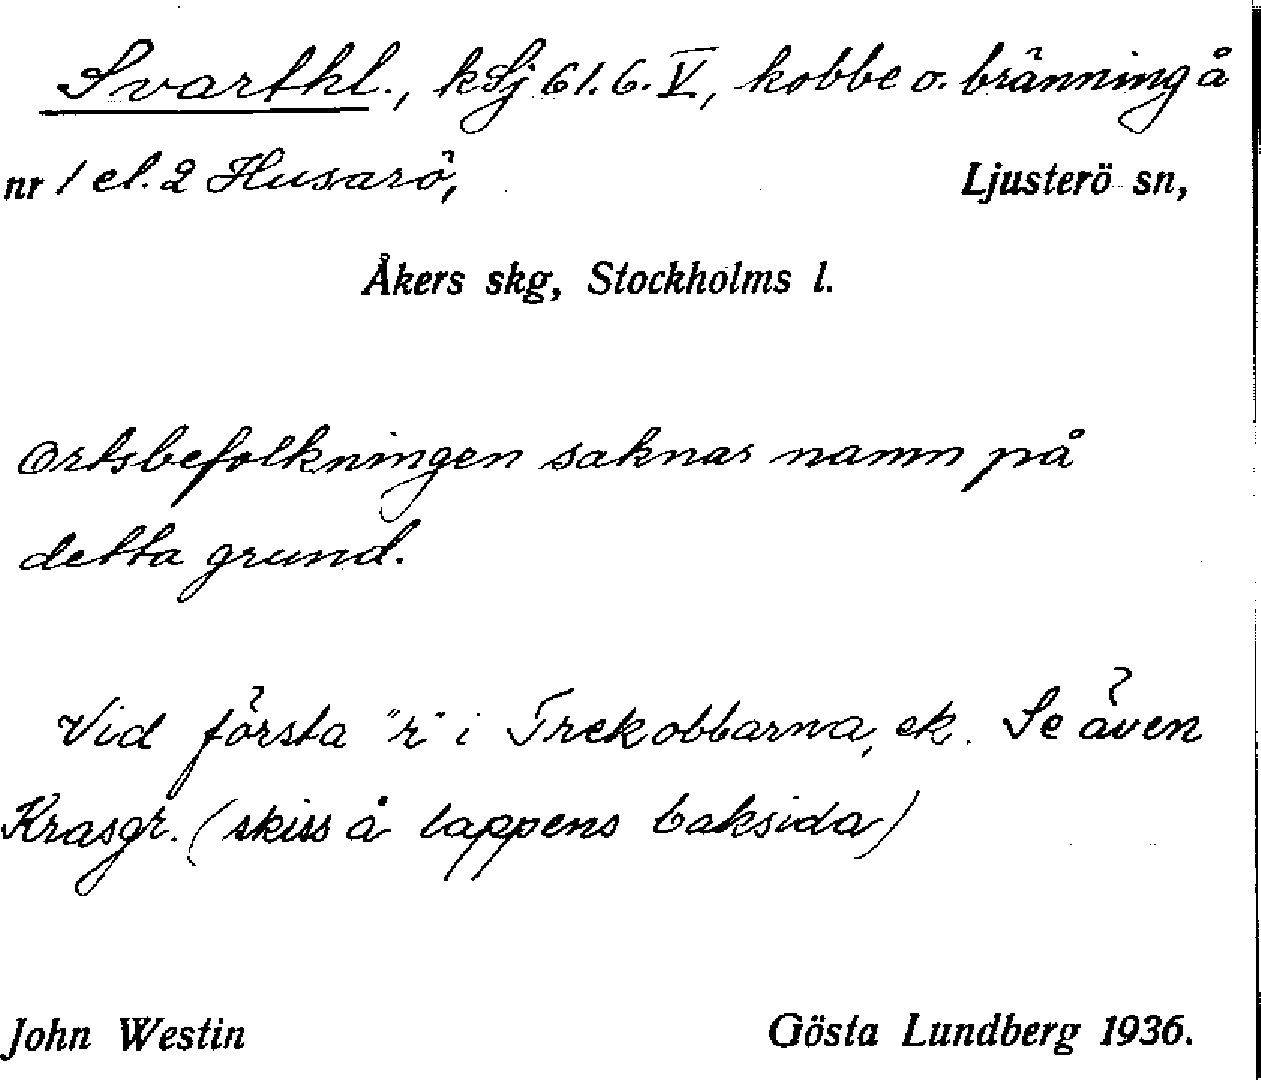 Svarthl., kSj 61.6.V, kobbe o. bränning å
nr 1 el. 2 Husarö, Ljusterö sn,
Åkers skg, Stockholms l.
Ortsbefolkningen saknar namn på
detta grund.
Vid första "r" i Trekobbarna, ek. Se även
Krasgr. (skiss å lappens baksida)
John Westin Gösta Lundberg 1936.